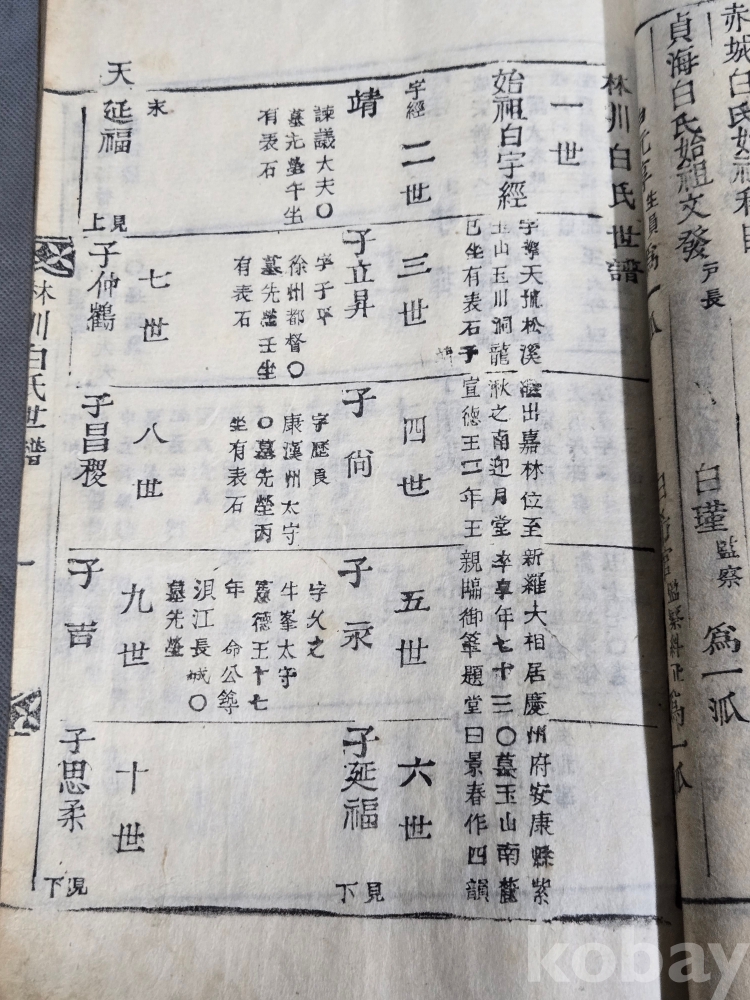 赤城白氏始祖利目
貞海白氏始祖文發 戸長
白瑾 監察 爲一派
林川白氏世譜
一世
始祖白宇經
字擎天號松溪 出嘉林位至新羅大相居慶州府安康縣紫
玉山玉川洞龍湫之南迎月堂卒享年七十三〇墓玉山南麓
巳坐有表石子 宣德王二年王親臨御筆題堂曰景春作四韻
字經
二世
三世
四世
五世
六世
靖
諫議大夫〇
墓先塋午坐
有表石
子立昇
字子平
徐州都督〇
墓先塋壬坐
有表石
子尙
字歷良
康漢州太守
〇墓先塋丙
坐有表石
子永
字父之
牛峯太守
憲德王十七
年 命公築
浿江長城〇
墓先塋
子延福
見下
永
七世
八世
九世
十世
天
延福
見上
子仲鶴
子昌稷
子吉
子思柔
見下
林川白氏世譜
一
kobay